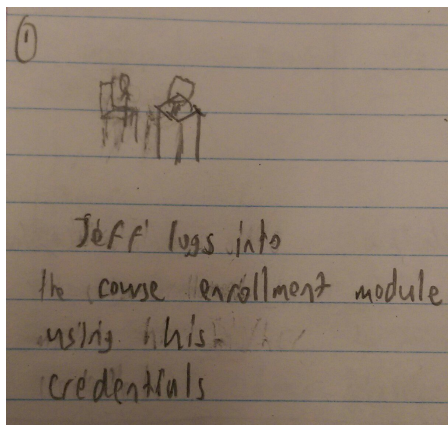 1
Jeff logs into
the course enrollment module
using his
credentials